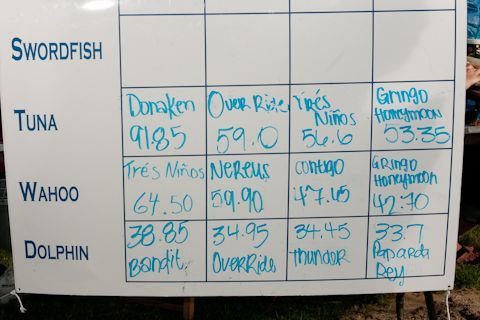 SWORDFISH
TUNA
Donaken
9185
Over Ride
59.0
Trés Niños
56.6
Gringo Honeymoon
53.35
WAHOO
Trés Niños
64.50
Nereus
59.90
Contigo
47.45
Gringo Honeymoon
42.70
DOLPHIN
38.85
Bandit
34.95
OverRide
34.45
Thunder
33.7
Rey